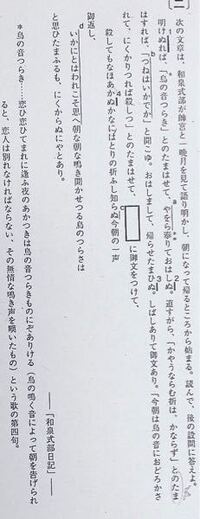 二
次の文章は、和泉式部が帥宮と一晩月を見て語り明かし、朝になって帰るところから始まる。読んで、後の設問に答えよ。
明けぬれば、「鳥の音つらき」とのたまはせて、やをら奉りておはしぬ。道すがら、「かやうならむ折は、かならず」とのたま
はすれば、「つねはいかでか」と聞こゆ。おはしまして、帰らせたまひぬ。しばしありて御文あり。「今朝は鳥の音におどろかさ
れて、にくかりつれば殺しつ」とのたまはせて、 に御文をつけて、
殺してもなほあかぬかなにはとりの折ふし知らぬ今朝の一声
御返し、
いかにとはわれこそ思へ朝な朝な鳴き聞かせつる鳥のつらさは
と思ひたまふるも、にくからぬにやとあり。
――「和泉式部日記」――
*鳥の音つらき……恋ひ恋ひてまれに逢ふ夜のあかつきは鳥の音つらきものにぞありける（鳥の鳴く音によって朝を告げられ
ると、恋人は別れなければならない、その無情な鳴き声を嘆いたもの）という歌の第四句。
a
b
c
d